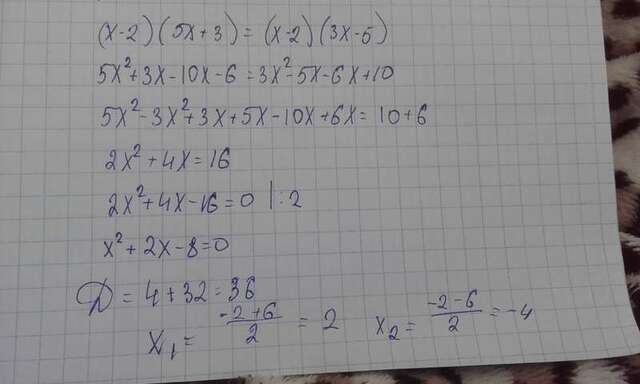 (x-2)(5x+3)=(x-2)(3x-5)
5x²+3x-10x-6=3x²-5x-6x+10
5x²-3x²+3x+5x-10x+6x=10+6
2x²+4x=16
2x²+4x-16=0 |:2
x²+2x-8=0
D=4+32=36
x₁=\frac{-2+6}{2}=2 x₂=\frac{-2-6}{2}=-4